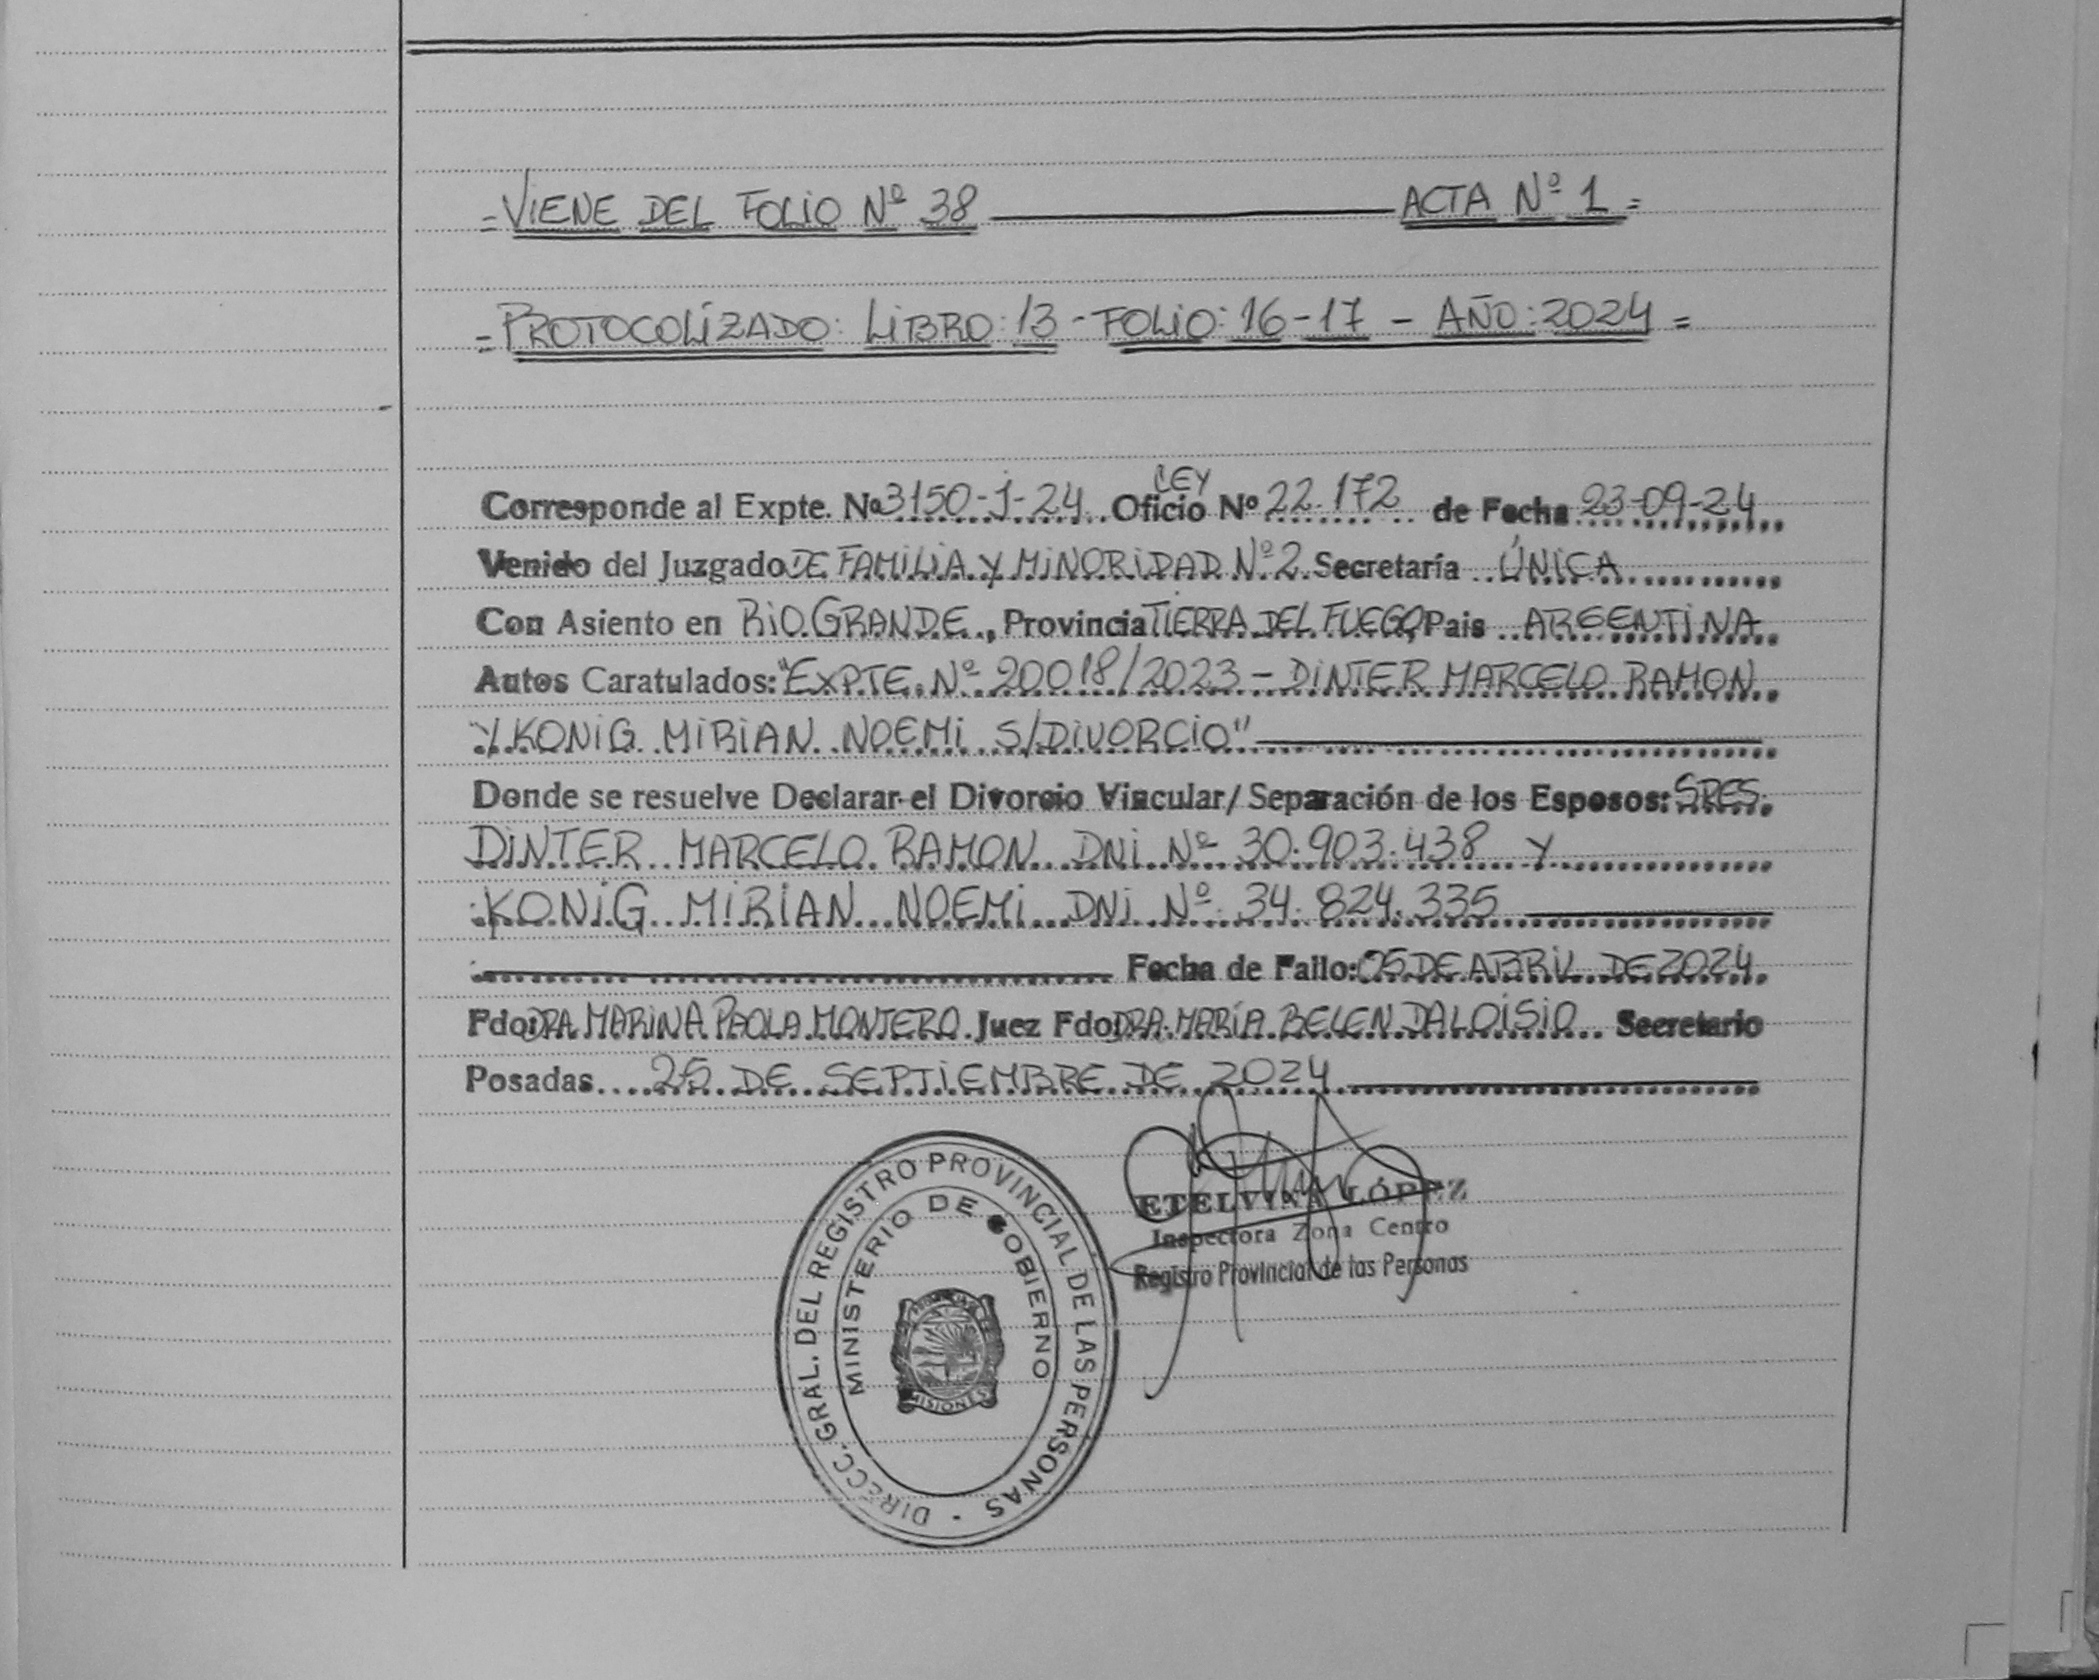 = VIENE DEL FOLIO Nº 38 ACTA Nº 1 =
= PROTOCOLIZADO: LIBRO: 13 - FOLIO: 16-17 - AÑO: 2024 =
LEY
Corresponde al Expte. Nº 3150-J-24 Oficio Nº 22.172 de Fecha 23-09-24
Venido del Juzgado DE FAMILIA Y MINORIDAD Nº 2 Secretaría ÚNICA
Con Asiento en RIO GRANDE, Provincia TIERRA DEL FUEGO, Pais ARGENTINA
Autos Caratulados: "EXPTE. Nº 20018/2023 - DINTER MARCELO RAMON
Y KONIG MIRIAN NOEMI S/DIVORCIO"
Donde se resuelve Declarar el Divorcio Vincular/Separación de los Esposos: SRES.
DINTER MARCELO RAMON DNI Nº 30.903.438 Y
KONIG MIRIAN NOEMI DNI Nº 34.824.335
Fecha de Fallo: 05 DE ABRIL DE 2024
Fdo: DRA. MARINA PAOLA MONTERO Juez Fdo: DRA. MARÍA BELEN DALOISIO Secretario
Posadas 25 DE SEPTIEMBRE DE 2024
ETELVINA LÓPEZ
Inspectora Zona Centro
Registro Provincial de las Personas
DIRECC. GRAL. DEL REGISTRO PROVINCIAL DE LAS PERSONAS
MINISTERIO DE GOBIERNO
MISIONES